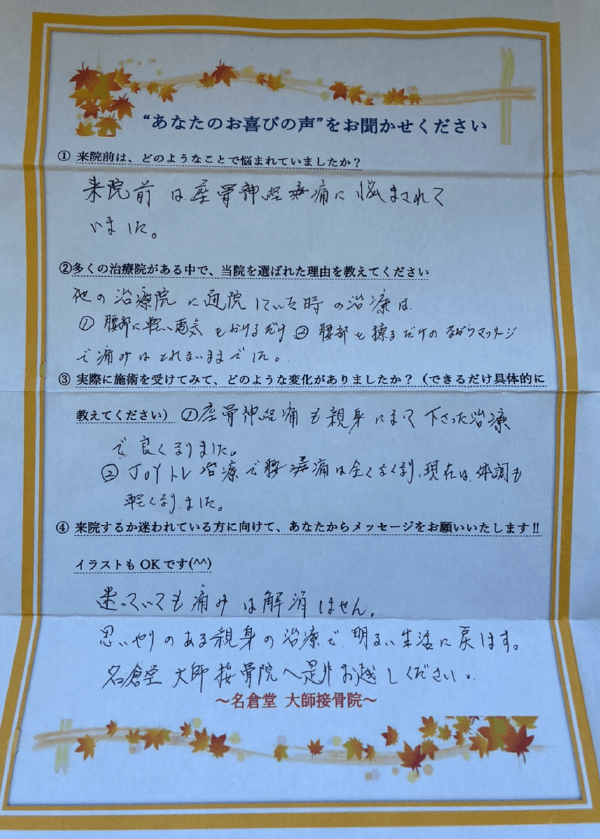 “あなたのお喜びの声”をお聞かせください
① 来院前は、どのようなことで悩まれていましたか？
来院前は座骨神経痛に悩まされて
いました。
②多くの治療院がある中で、当院を選ばれた理由を教えてください
他の治療院に通院していた時の治療は
① 腰部に軽い電気をかけるだけ ② 腰部を擦るだけのマッサージ
で痛みはとれないままでした。
③ 実際に施術を受けてみて、どのような変化がありましたか？（できるだけ具体的に
教えてください） ①座骨神経痛も親身になって下さった治療
で良くなりました。
② JOYトレ治療で腰痛は全くなくなり、現在は、体調も
軽くなりました。
④ 来院するか迷われている方に向けて、あなたからメッセージをお願いいたします!!
イラストもOKです(^^)
迷っていても痛みは解消しません。
思いやりのある親身の治療で明るい生活に戻れます。
名倉堂 大師接骨院へ是非お越しください。
～名倉堂 大師接骨院～